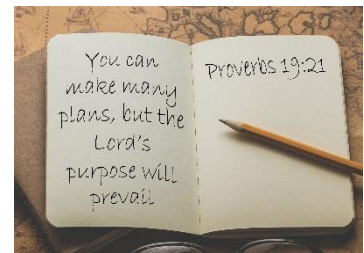 You can
make many
plans, but the
Lord's
purpose will
prevail
Proverbs 19:21